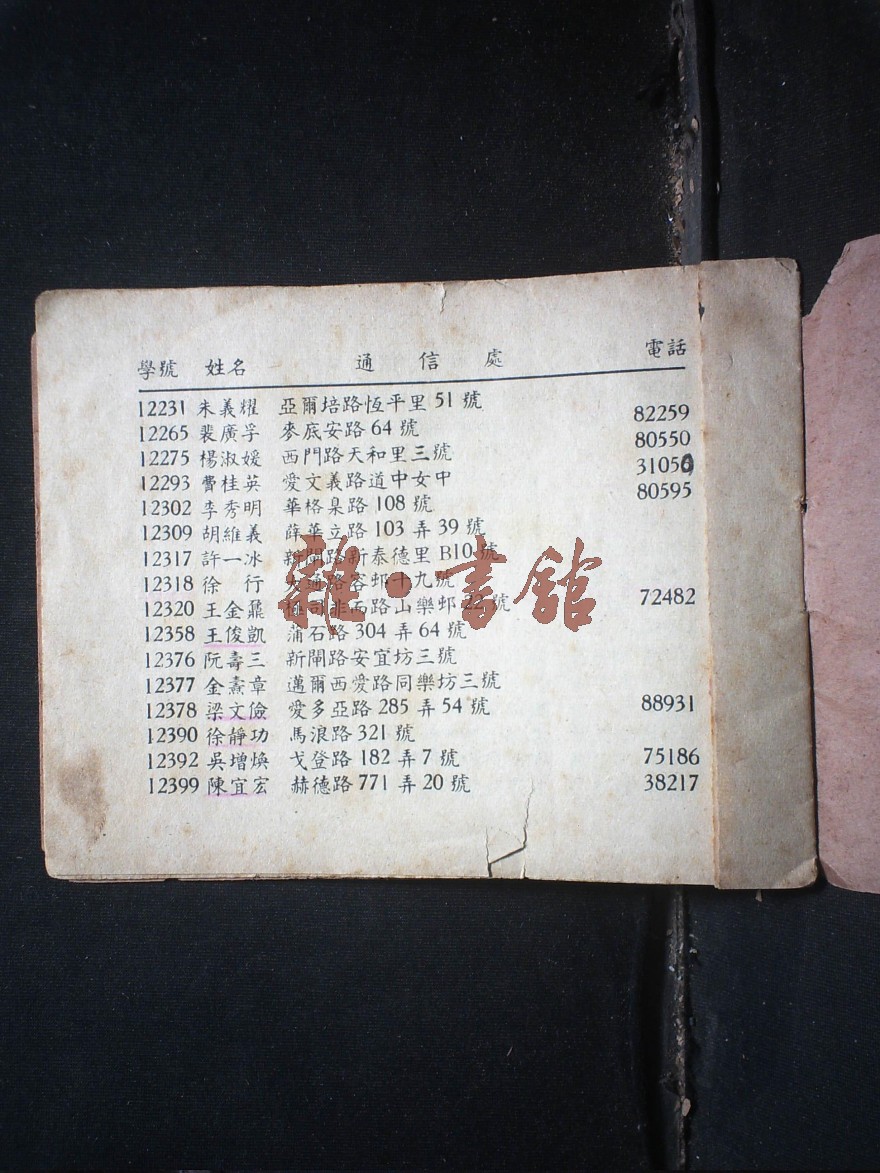 學號 姓名 通信處 電話
12231 朱義耀 亞爾培路恆平里 51 號
12265 裴廣孚 麥底安路 64 號 82259
12275 楊淑媛 西門路天和里三號 80550
12293 費桂英 愛文義路道中女中 31050
12302 李秀明 華格臬路 108 號 80595
12309 胡維義 薛華立路 103 弄 39 號
12317 許一冰 新閘路新泰德里 B10 號
12318 徐 行 大通路 邨十九號
12320 王金鼐 極司非而路山樂邨 22 號 72482
12358 王俊凱 蒲石路 304 弄 64 號
12376 阮壽三 新閘路安宜坊三號
12377 金燾章 邁爾西愛路同樂坊三號
12378 梁文儉 愛多亞路 285 弄 54 號 88931
12390 徐靜功 馬浪路 321 號
12392 吳增煥 戈登路 182 弄 7 號 75186
12399 陳宜宏 赫德路 771 弄 20 號 38217
雜·書館